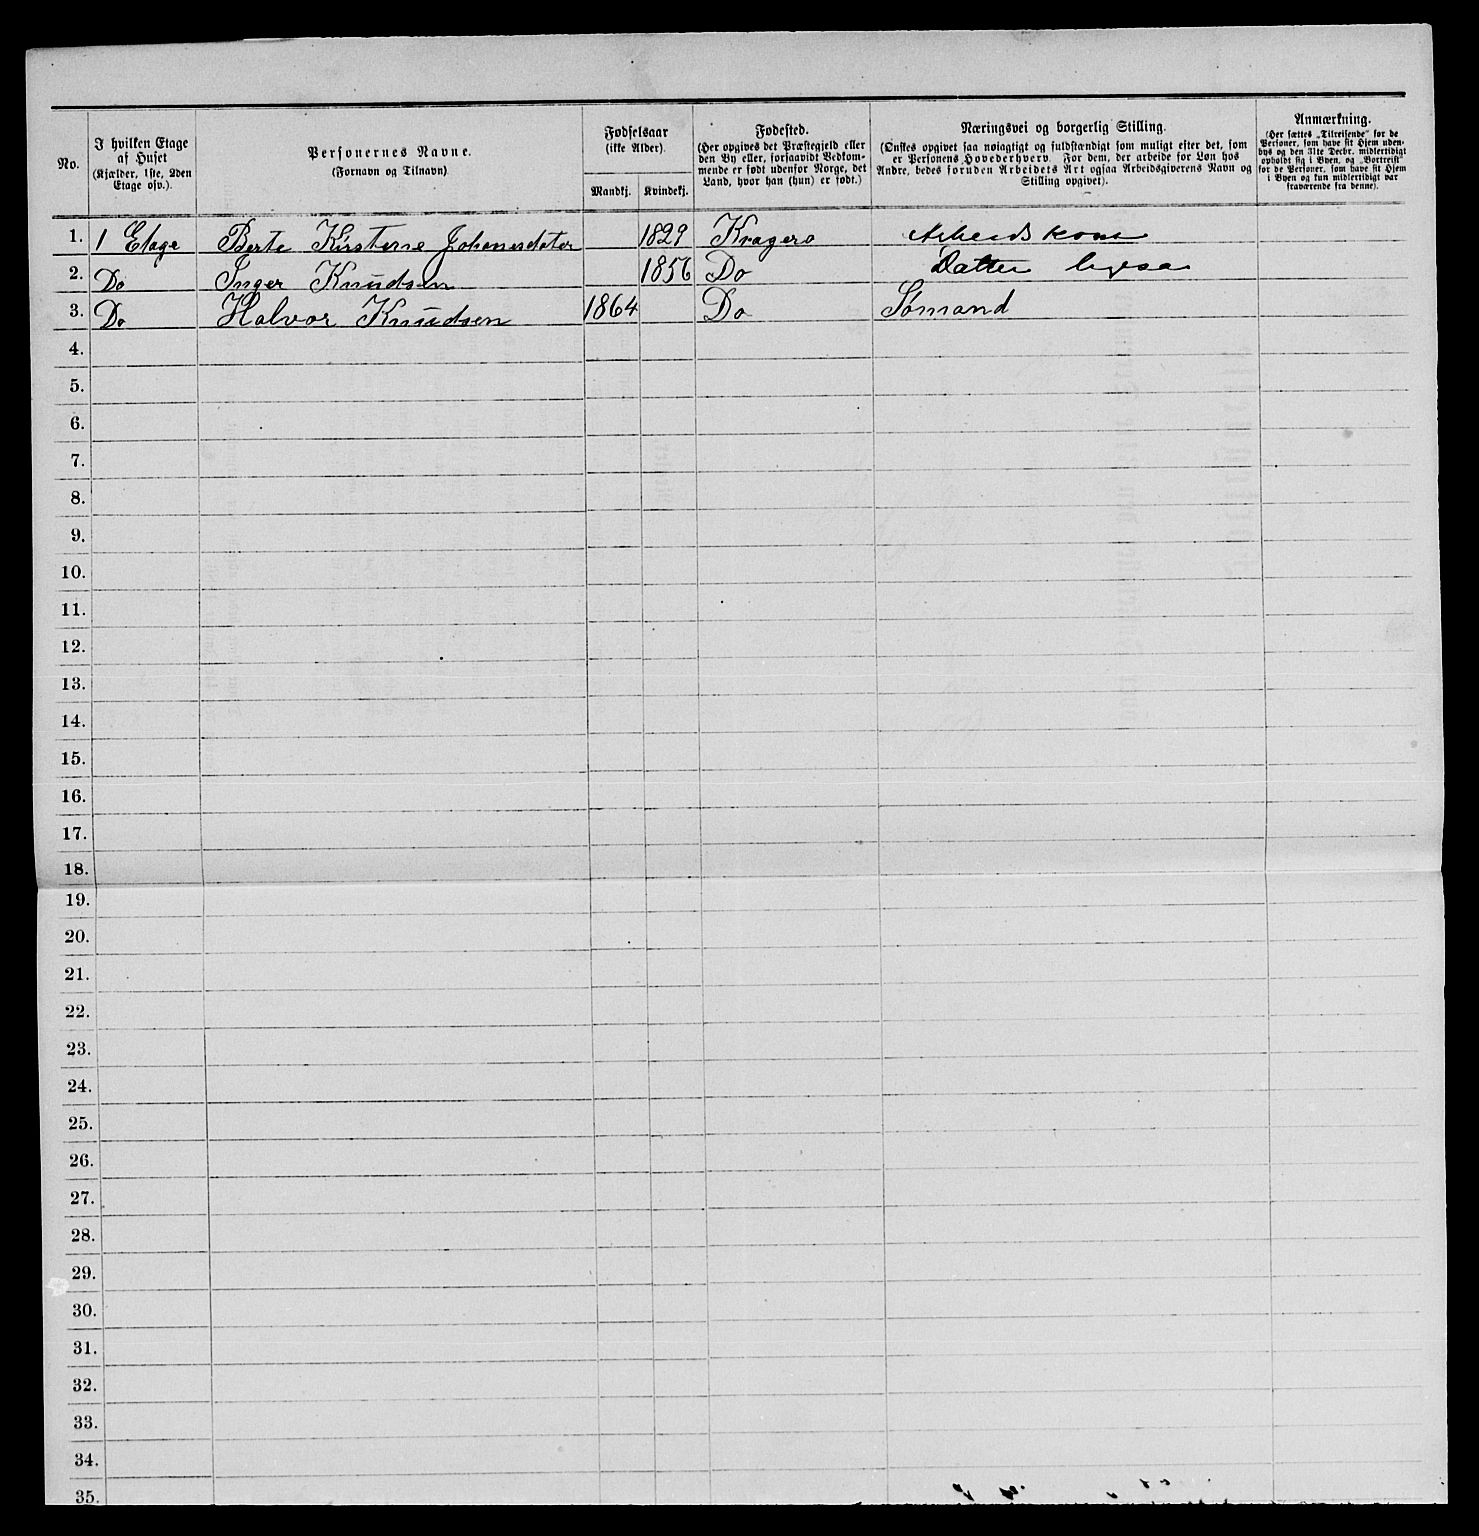 No.
I hvilken Etage
af Huset
(Kjælder, 1ste, 2den
Etage osv.).
Personernes Navne.
(Fornavn og Tilnavn).
Fødselsaar
(ikke Alder).
Mandkj. Kvindekj.
Fødested.
(Her opgives det Præstegjeld eller
den By eller, forsaavidt Vedkom-
mende er født udenfor Norge, det
Land, hvor han (hun) er født.)
Næringsvei og borgerlig Stilling.
(Ønskes opgivet saa nøiagtigt og fuldstændigt som muligt efter det, som
er Personens Hovederhverv. For dem, der arbeide for Løn hos
Andre, bedes foruden Arbeidets Art ogsaa Arbeidsgiverens Navn og
Stilling opgivet).
Anmærkning.
(Her sættes „Tilreisende“ for de
Personer, som have sit Hjem uden-
bys og den 31te Decbr. midlertidigt
opholdt sig i Byen, og „Bortreist“
for de Personer, som have sit Hjem
i Byen og kun midlertidigt var
fraværende fra denne).
1. 1 Etage Berte Kirstene Johanesdater 1829 Kragerø Arbeidskone
2. Do Inger Knudsen 1856 Do Datter ligesaa
3. Do Halvor Knudsen 1864 Do Sømand
4.
5.
6.
7.
8.
9.
10.
11.
12.
13.
14.
15.
16.
17.
18.
19.
20.
21.
22.
23.
24.
25.
26.
27.
28.
29.
30.
31.
32.
33.
34.
35.